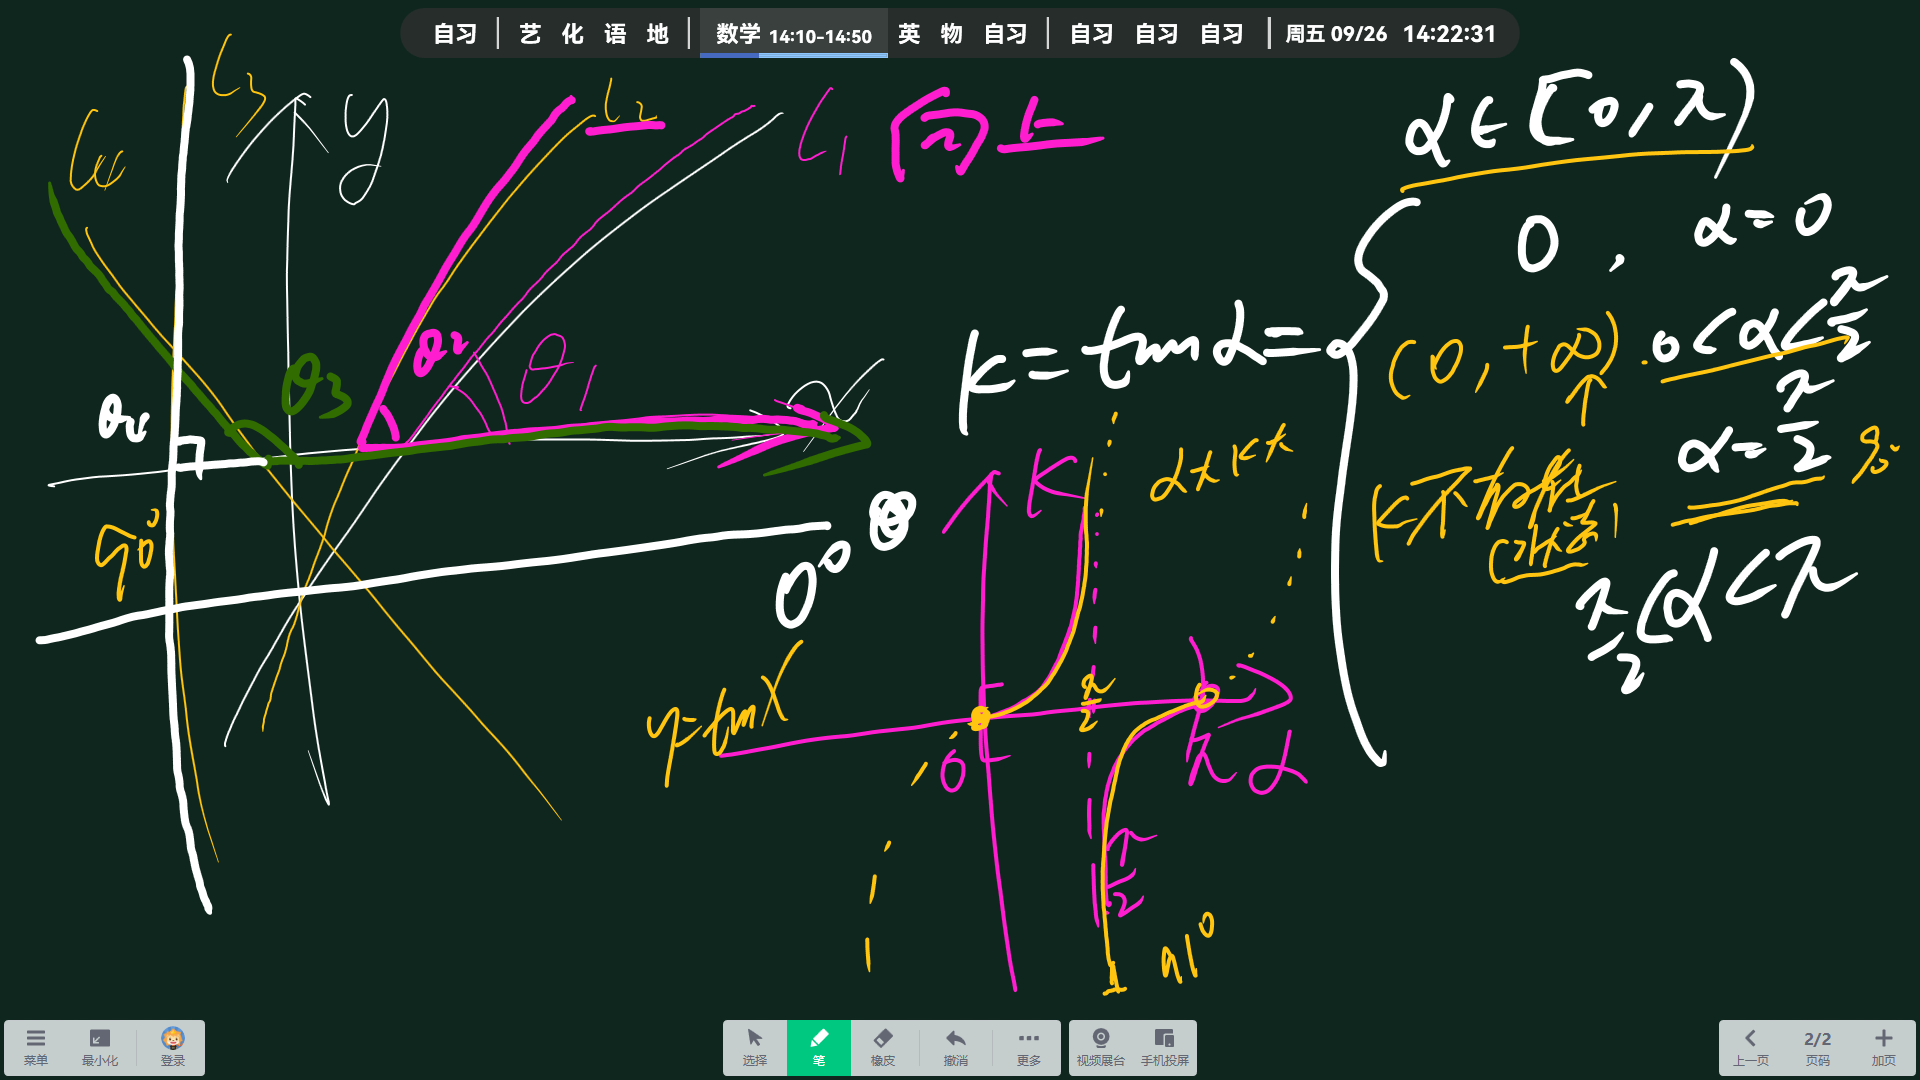 自习 | 艺 化 语 地 | 数学 14:10-14:50 英 物 自习 | 自习 自习 自习 | 周五 09/26 14:22:31
l₄
l₃
y
l₂
l₁ 向上
α∈[0,π)
0, α=0
k=tanα=
(0,+∞) 0<α<π/2
α=π/2
k不存在
π/2<α<π
θ₁
θ₂
θ₃
θ₄
90°
0°
α大k大
k
y=tanx
0
π/2
π
α
π/2
91°
菜单
最小化
登录
选择
笔
橡皮
撤消
更多
视频展台
手机投屏
上一页
2/2
页码
加页